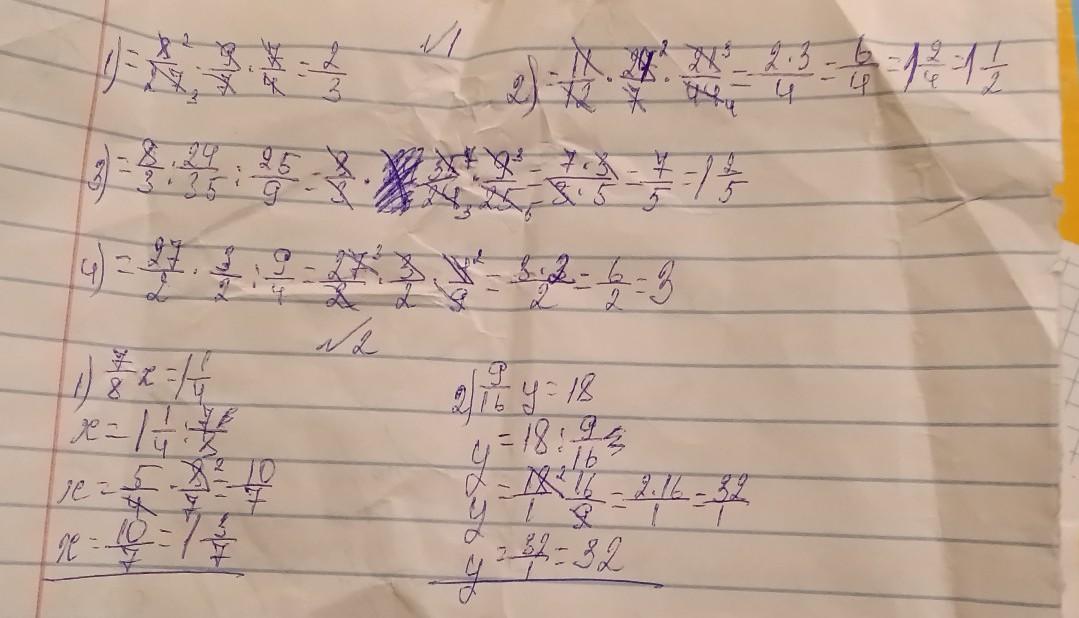 №1
1) = 8/27 · 9/7 · 7/4 = 2/3
2) = 11/12 · 24/7 · 21/44 = 2·3/4 = 6/4 = 1 2/4 = 1 1/2
3) = 8/3 : 24/35 : 25/9 = 8/3 · 35/24 · 9/25 = 7·3/3·5 = 7/5 = 1 2/5
4) = 27/2 · 3/2 : 9/4 = 27/2 · 3/2 · 4/9 = 3·2/2 = 6/2 = 3
№2
1) 7/8 x = 1 1/4
x = 1 1/4 : 7/8
x = 5/4 · 8/7 = 10/7
x = 10/7 = 1 3/7
2) 9/16 y = 18
y = 18 : 9/16
y = 18/1 · 16/9 = 2·16/1 = 32/1
y = 32/1 = 32